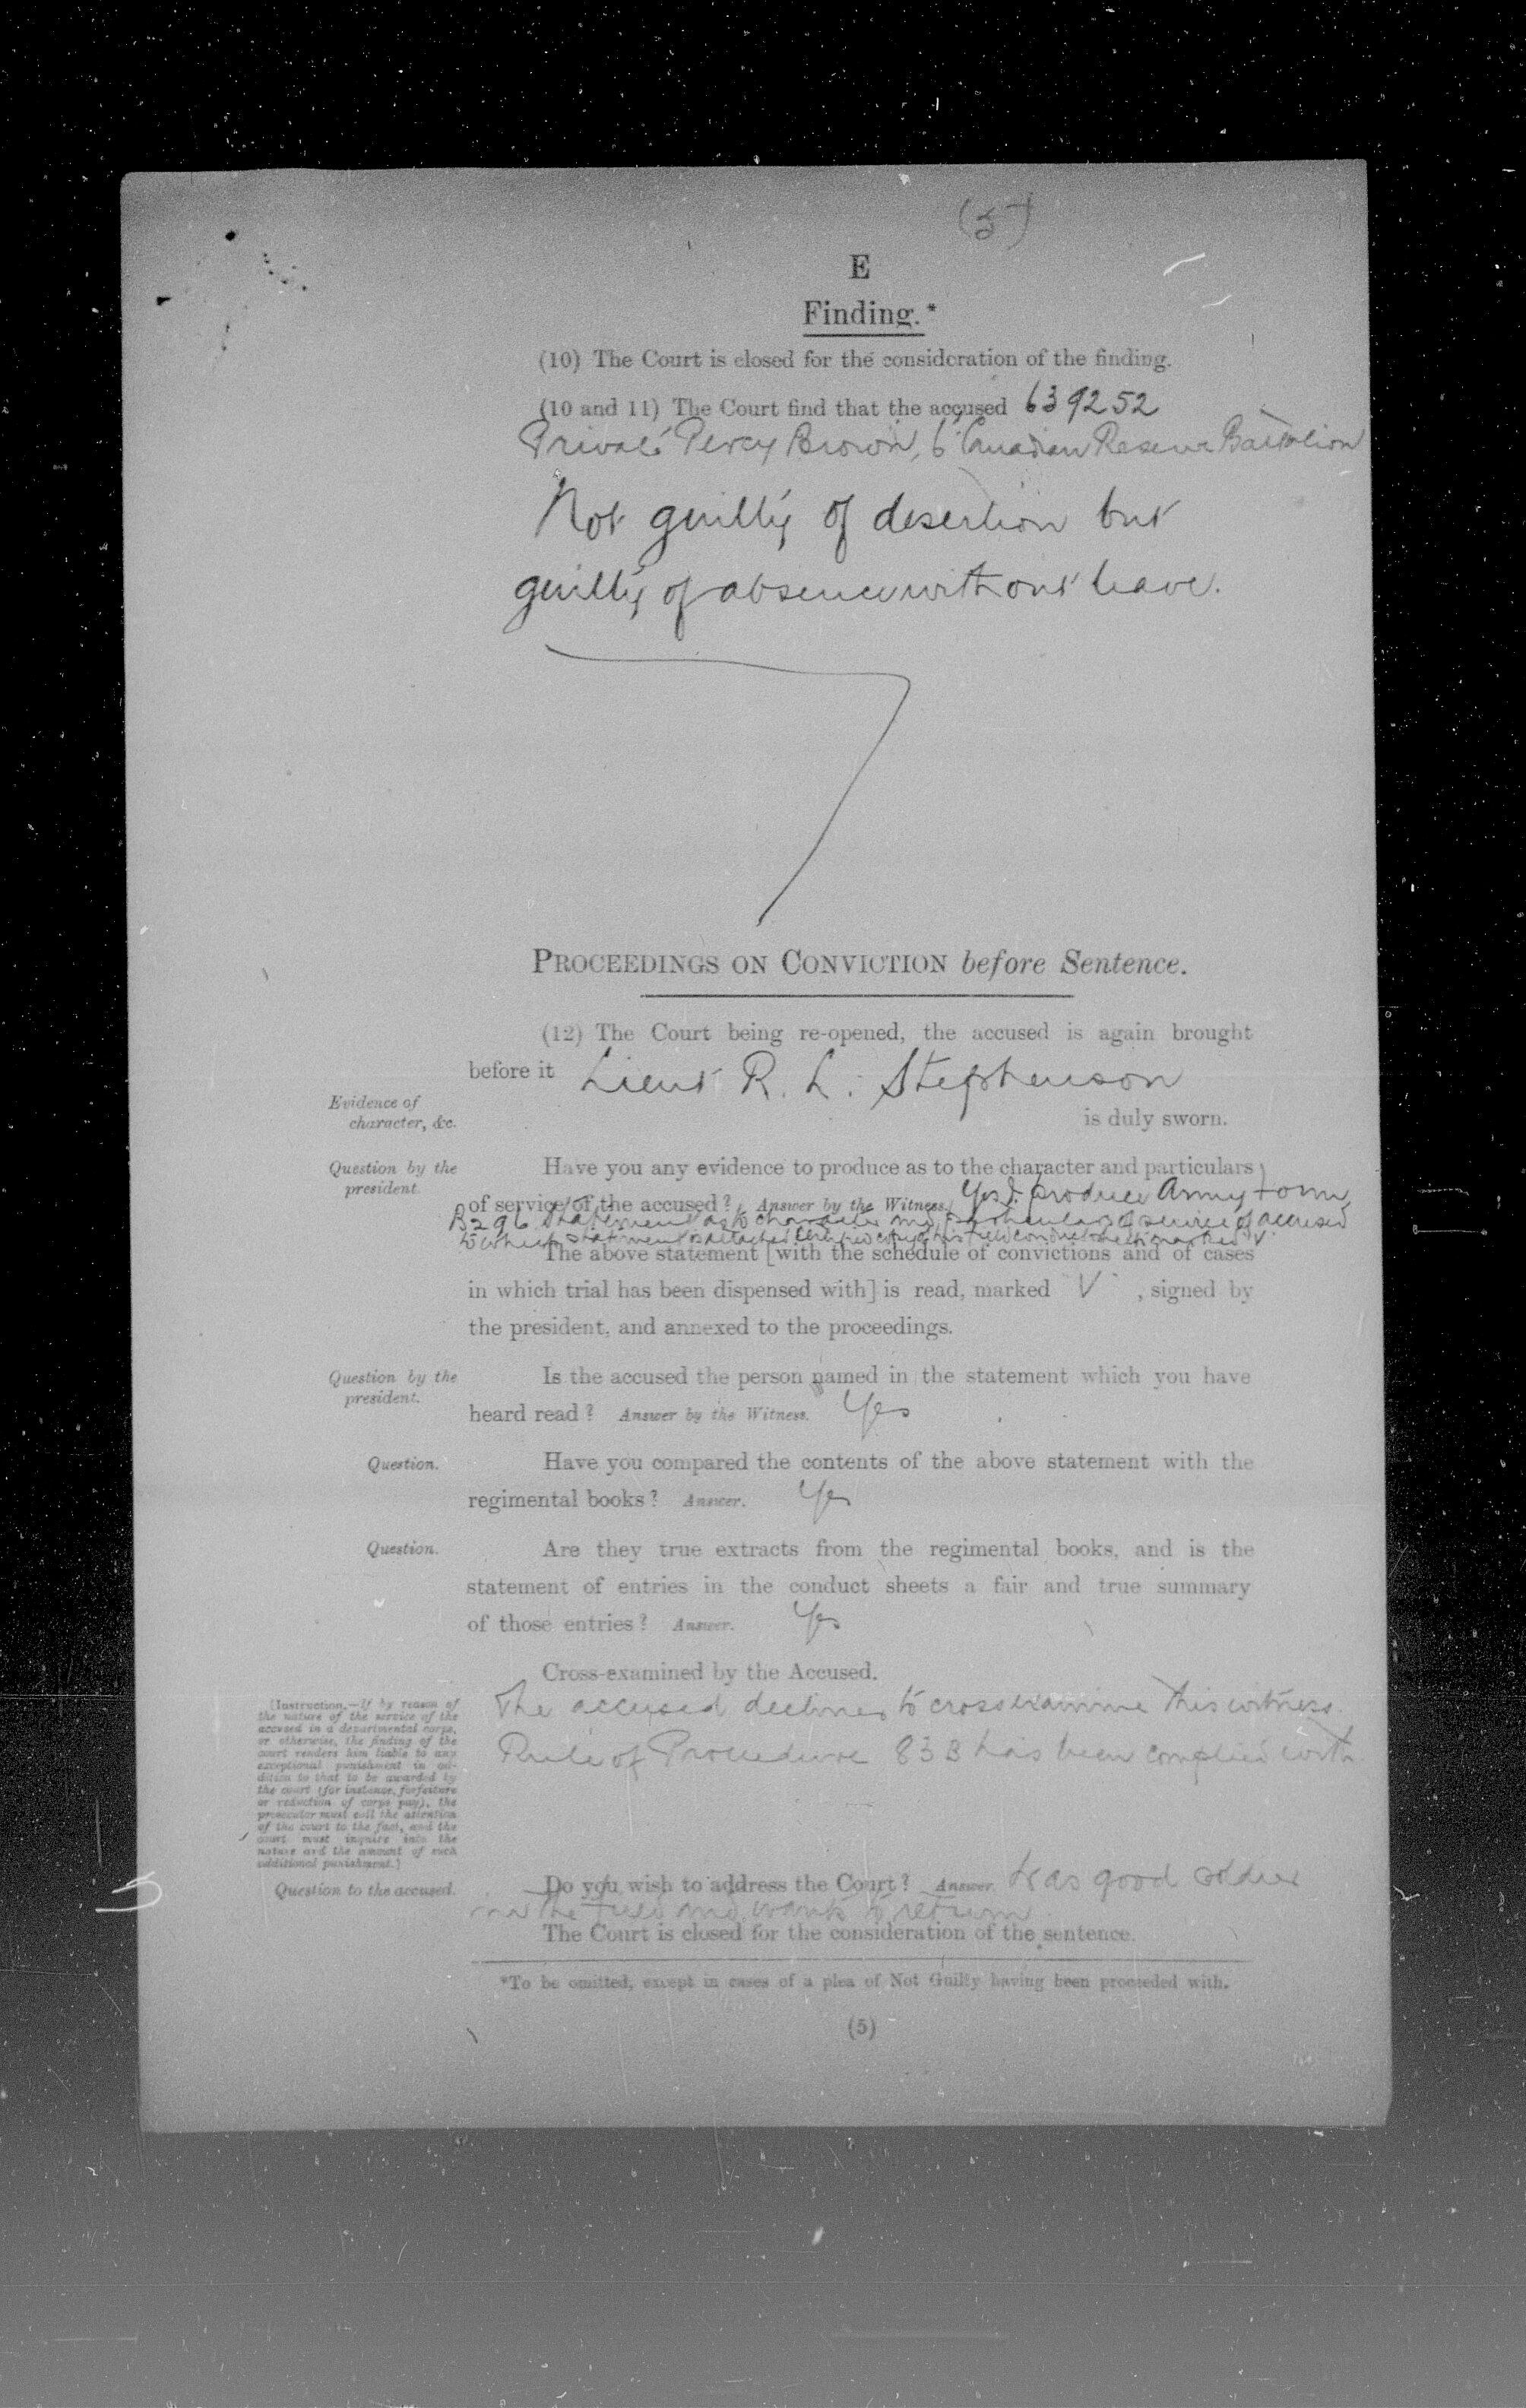 (5)
E
Finding.*
(10) The Court is closed for the consideration of the finding.
(10 and 11) The Court find that the accused 639252
Private Percy Brown, 6 Canadian Reserve Battalion
Not guilty of desertion but
guilty of absence without leave.
PROCEEDINGS ON CONVICTION before Sentence.
(12) The Court being re-opened, the accused is again brought
before it Lieut R. L. Stephenson
Evidence of
character, &c.
is duly sworn.
Question by the
president.
Have you any evidence to produce as to the character and particulars
of service of the accused? Answer by the Witness. Yes I produce Army Form
B296 Statement as to character and particulars of service of accused
to which statement is attached certified copy of his field conduct sheet marked V
The above statement [with the schedule of convictions and of cases
in which trial has been dispensed with] is read, marked "V", signed by
the president, and annexed to the proceedings.
Question by the
president.
Is the accused the person named in the statement which you have
heard read? Answer by the Witness. Yes
Question.
Have you compared the contents of the above statement with the
regimental books? Answer. Yes
Question.
Are they true extracts from the regimental books, and is the
statement of entries in the conduct sheets a fair and true summary
of those entries? Answer. Yes
Cross-examined by the Accused.
The accused declines to cross examine this witness.
Rule of Procedure 83B has been complied with.
[Instruction.—If by reason of
the nature of the service of the
accused in a departmental corps,
or otherwise, the finding of the
court renders him liable to any
exceptional punishment in ad-
dition to that to be awarded by
the court (for instance, forfeiture
or reduction of corps pay), the
prosecutor must call the attention
of the court to the fact, and the
court must inquire into the
nature and the amount of such
additional punishment.]
Question to the accused.
Do you wish to address the Court? Answer. Was good soldier
in the field and wants to return.
The Court is closed for the consideration of the sentence.
*To be omitted, except in cases of a plea of Not Guilty having been proceeded with.
(5)